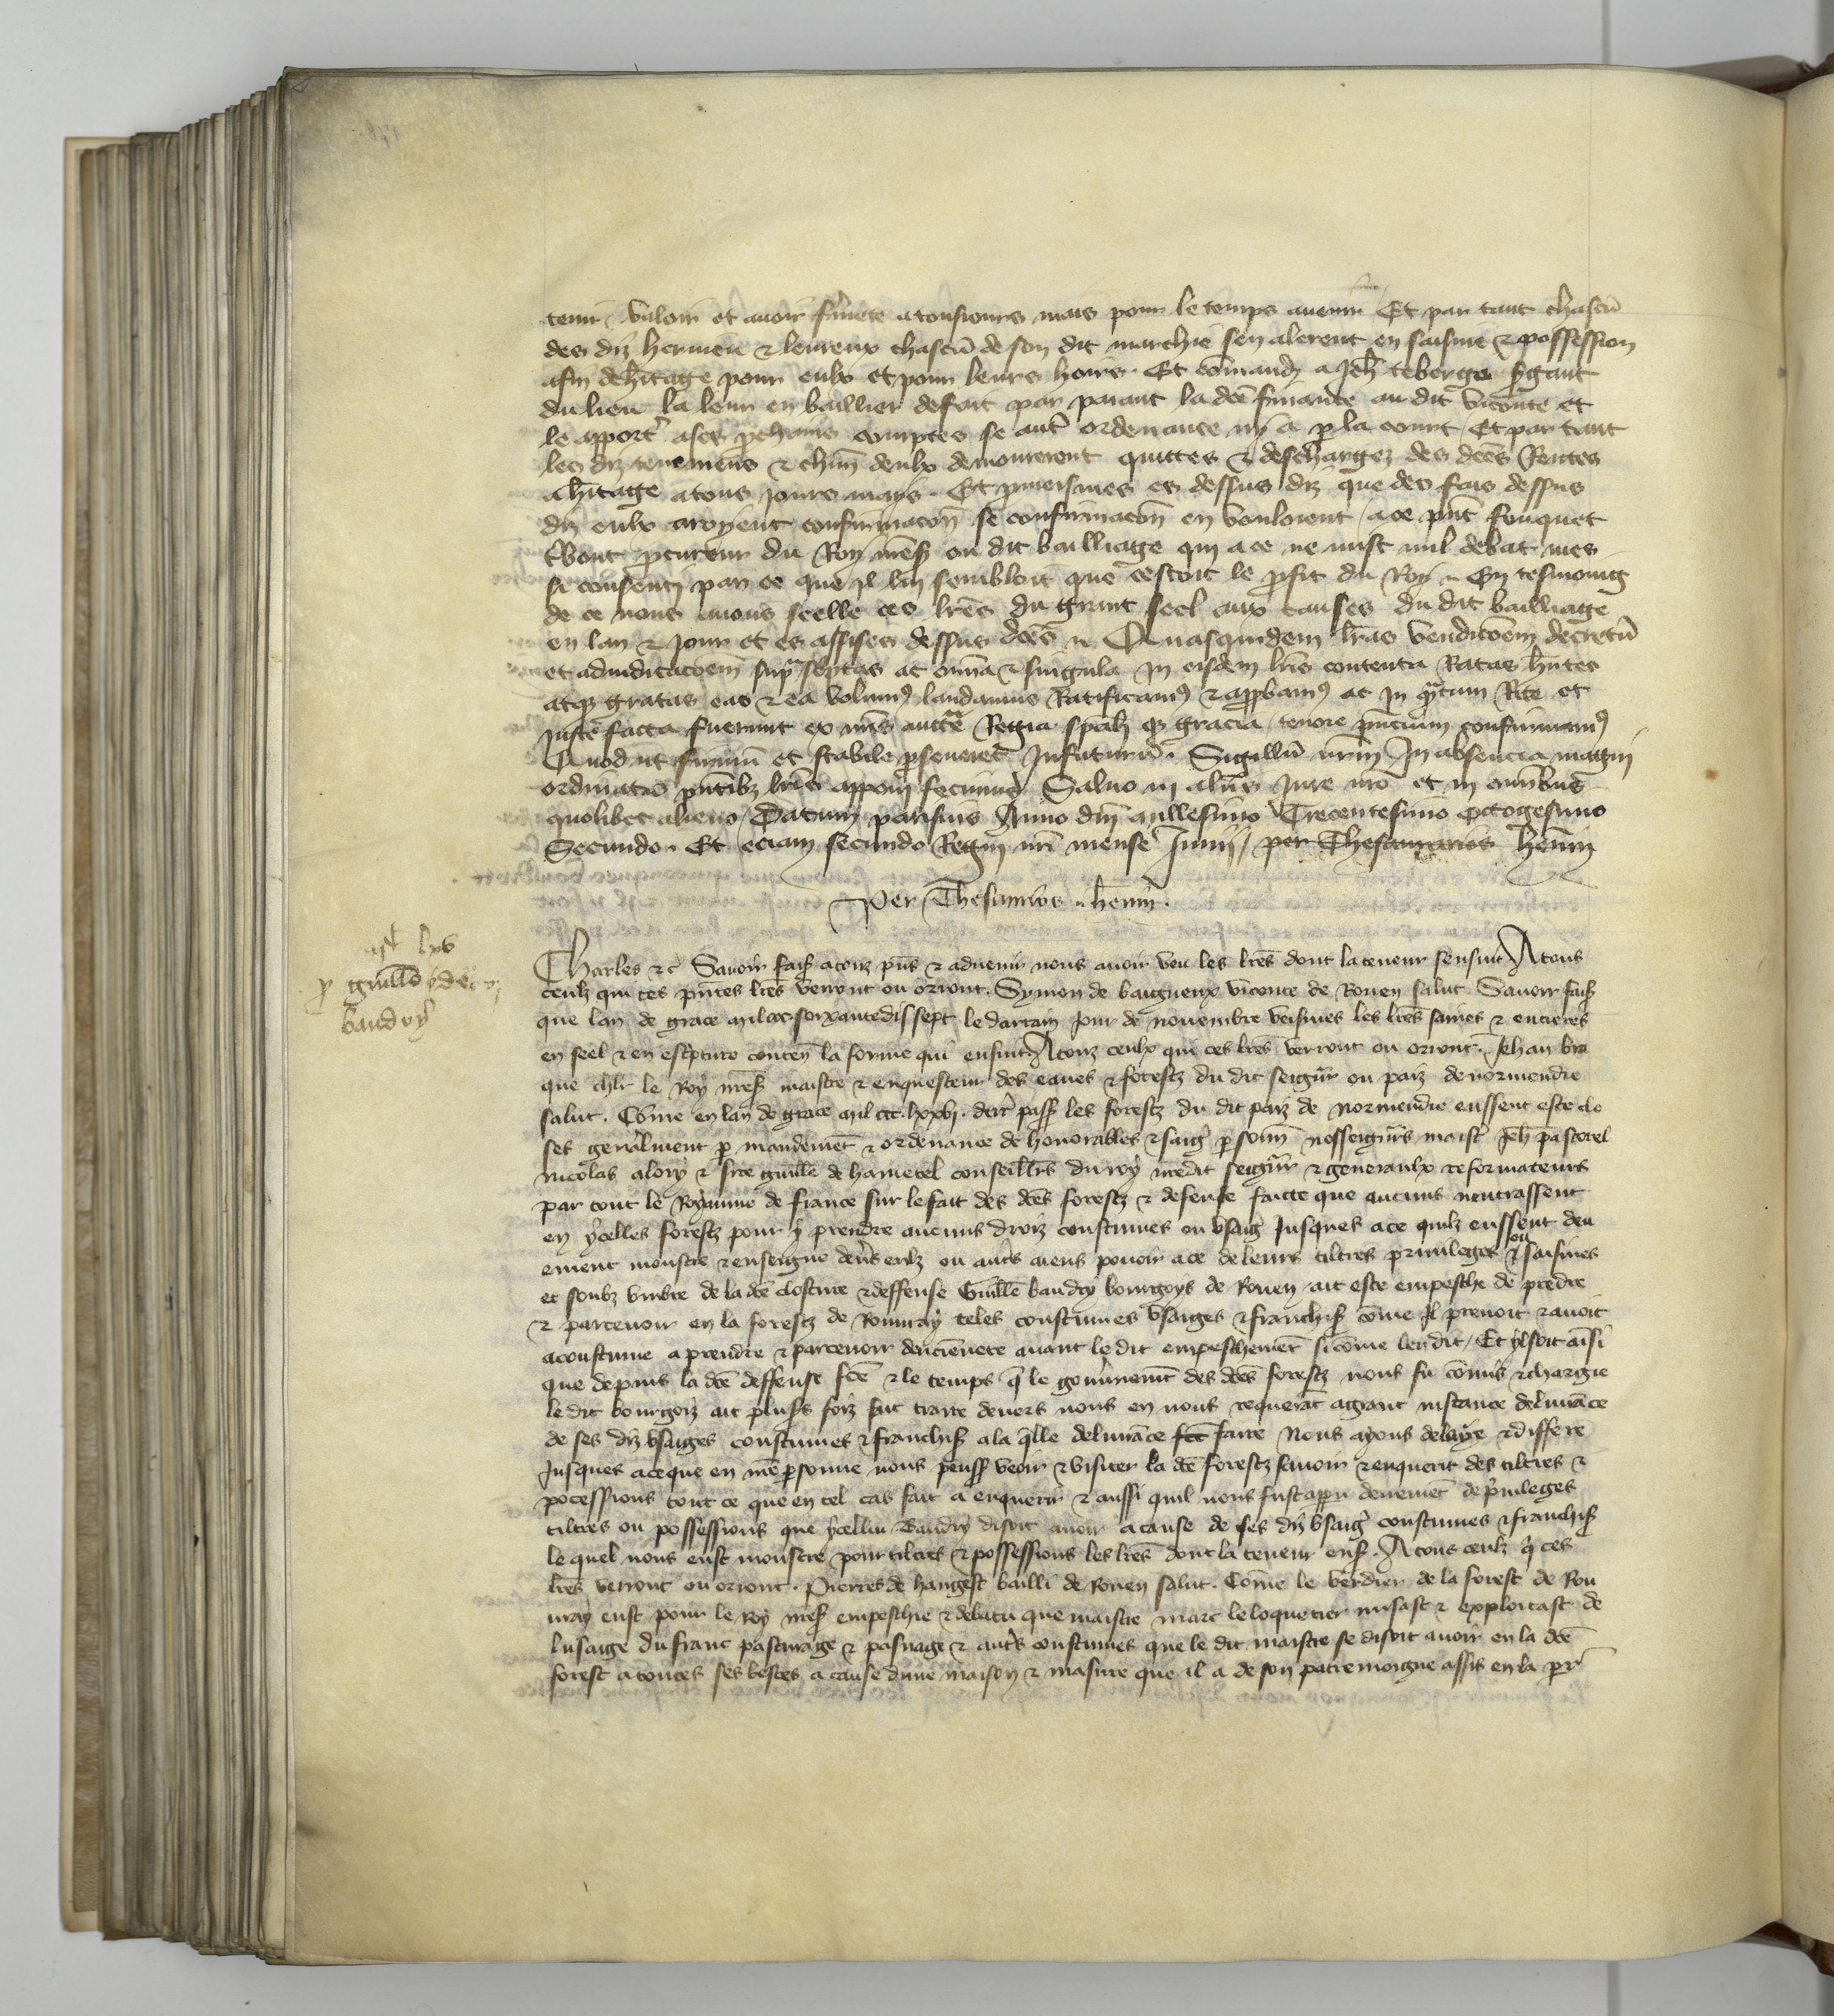 tenir valoir et avoir fermete a tousiours mais pour le temps avenir Et par tant chascū
des diz hermen & leureux chascū de son dit marchie sen alerent en saisine & possession
afin de hītage pour eulx et pour leurs hoirs. Et cōmandз a Jeh teberge sgant
du lieu la leur en baillier de fait par paiant la dcē finance au dit viconte et
le apport ases pchains comptes se autr ordenance ny a p la court Et par tant
les diz tenemens & chūn deulx demourerent quittes & deschargez des dcēs Rentes
a hītage a tous jours mays. Et pmeismes es dessus diz que des fais dessus
diz eulx aroyent confirmacōn se confirmacōn en vouloient / a ce pnt fouquet
pcureur du Roy nres ou dit bailliage qui a ce ne mist nul debat mes
si consenti par ce que il lui sembloit que cestoit le pfit du Roy En tesmoing
de ce nous avons scelle ces lrēs du grant seel aux causes du dit bailliage
en lan & jour et es assises dessus dcēs Quasquidem lrās vendicoēm decretū
et adiudicacoēm supra scptas ac omīa & singula in eisdem lrīs contenta Ratas hntes
atqз gratas eas & ea volum9 laudamus Ratificam9 & appbam9 ac in qntum Rite et
juste facta fuerunt ex nrīs auctte Regia spāli qз gracia / tenore pnciūm confirmam9
Quod ut firmū et stabile pseveret Infuturū. Sigillū nrm In absencia magni
ordinatū pntibз lrīs apponi fecimus Salvo in aliis Jure nrō et in omībus
quolibet alieno / Datum parisius Anno dnī millesimo Trecentesimo Octogesimo
Secundo. Et eciam secundo Regni nrī mense Junij / per Thesaurarios henin
Per Thesaurarios henin.
lxv
p guillē de
baudry
Charles &c Savoir faisз a touz pns & advenir nous avoir veu les lrēs dont la teneur sensuit A tous
ceulz qui ces pntes lrēs verront ou orront. Symon de baigneux viconte de Rouen salut Savoir faisз
que lan de grace mil ccc soixante dissept le darrain jour de novembre veismes les lrēs saines & entieres
en seel & en escpture conten la forme qui ensuit. A touz ceulx qui ces lrēs verront ou orront. Jehan bra
que chlr le Roy nres maistre & enquesteur des eaues & forestз du dit seigur ou paiz de normendie
salut. Cōme en lan de grace mil ccc. lxxvj. derr passз les forestз du dit paiz de normendie eussent este clo
ses geralment p mandemēt & ordenance de honorables & saigз psonn nosseigurs maistr Jeh pastorel
nicolas alory & sire guille de hametel conseillrs du roy nredit seigur & generaulx reformateurs
par tout le Royaume de france sur le fait des dcēs forestз & defense faicte que aucuns nentrassent
en ycelles forestз pour y prendre aucuns droiz coustumes ou usaigз Jusques ace quilz eussent deu
ement monstre & enseigne devs eulz ou autrs aiens povoir a ce de leurs tiltres privileges ou & saisines
et soubz umbre de la dcē closture & deffense Guillē baudry bourgoys de Rouen / ait este empesche de predre
& parcevoir en la forestз de Rouvray teles coustumes usaiges & franchisз cōme Il prenoit & avoit
acoustume a prendre & parcevoir dencienete avant le dit empeschemēt si cōme len dit / Et yl soit aīsi
que depuis la dcē deffense fcē & le temps q le govnemēt des dcēs forestз nous fu cōmis & chargie
le dit bourgoiz ait plusrs foiz fait traire devers nous en nous requerāt a grant instance delivrāce
de ses diz usaiges coustumes & franchisз a la qlle delivrāce fcē faire Nous ayons delaye & differe
Jusques ace que en nrē psonne nous peussз veoir & visiter la dcē forestз savoir & enquerir des tiltres &
pocessions tout ce que en tel cas fait a enquerir & aussi quil nous fust appu deuement de pvileges
tiltres ou possessions que ycellui Baudry disoit avoir a cause de ses dyз usaigз coustumes & franchisз
le quel nous eust monstre pour tiltres & possessions les lrēs dont la teneur ensз. A tous ceulz q ces
lrēs verront ou orront. Pierres de hangest bailli de Rouen salut. Come le verdier de la forest de Rou
vray eust pour le roy nres empeschie & debatu que maistre marc le loquetier nusast & exploitast de
lusaige du franc pasturage & pasnage & autrs coustumes que le dit maistre se disoit avoir en la dcē
forest a toutes ses bestes a cause dune maison & masure que il a de son patremoigne assis en la par